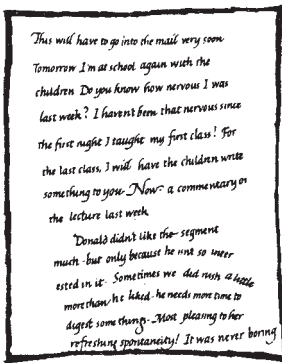 This will have to go into the mail very soon
Tomorrow I'm at school again with the
children Do you know how nervous I was
last week? I haven't been that nervous since
the first night I taught my first class! For
the last class, I will have the children write
something to you- Now- a commentary on
the lecture last week
Donald didn't like the segment
much- but only because he isn't so inter
ested in it. Sometimes we did rush a little
more than he liked- he needs more time to
digest some things- Most pleasing to her
refreshing spontaneity! It was never boring